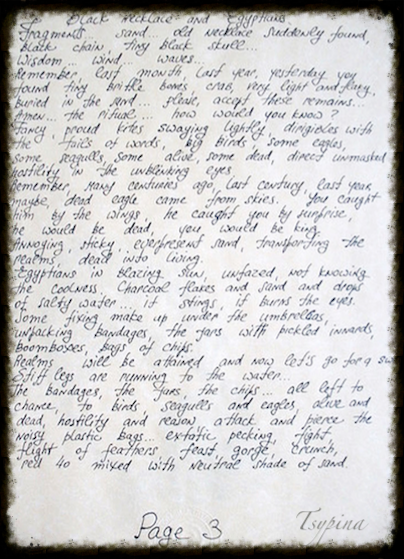 Black Necklace and Egyptians
Fragments... sand... old necklace suddenly found,
Black chain, tiny black skull...
Wisdom... wind... waves...
Remember, last month, last year, yesterday you
found tiny brittle bones, crab, very light and
buried in the sand... please, accept these remains...
Amen... the ritual... how would you know?
Fancy, proud kites swaying lightly, dirigibles with
the tails of words, big birds, some eagles,
some seagulls, some alive, some dead, direct unmasked
hostility in the unblinking eyes.
Remember, many centuries ago, last century, last year
maybe, dead eagle came from skies. You caught
him by the wings, he caught you by surprise,
he would be dead, you would be king.
Annoying, sticky, everpresent sand, transporting the
realms, dead into living.
Egyptians in blazing sun, unfazed, not knowing
the coolness Charcoal flakes and sand and drops
of salty water... it stings, it burns the eyes.
Some fixing make up under the umbrellas,
unpacking bandages, the jars with pickled innards,
Boomboxes, bags of chips.
Realms will be attained and now let's go for a
Stiff legs are running to the water...
The bandages, the jars, the chips... all left to
chance to birds, seagulls and eagles, alive and
dead, hostility and reason attack and pierce the
noisy plastic bags... extatic pecking, fight,
flight of feathers, feast, gorge, crunch,
red 40 mixed with Neutral shade of sand.
Page 3
Tsypina